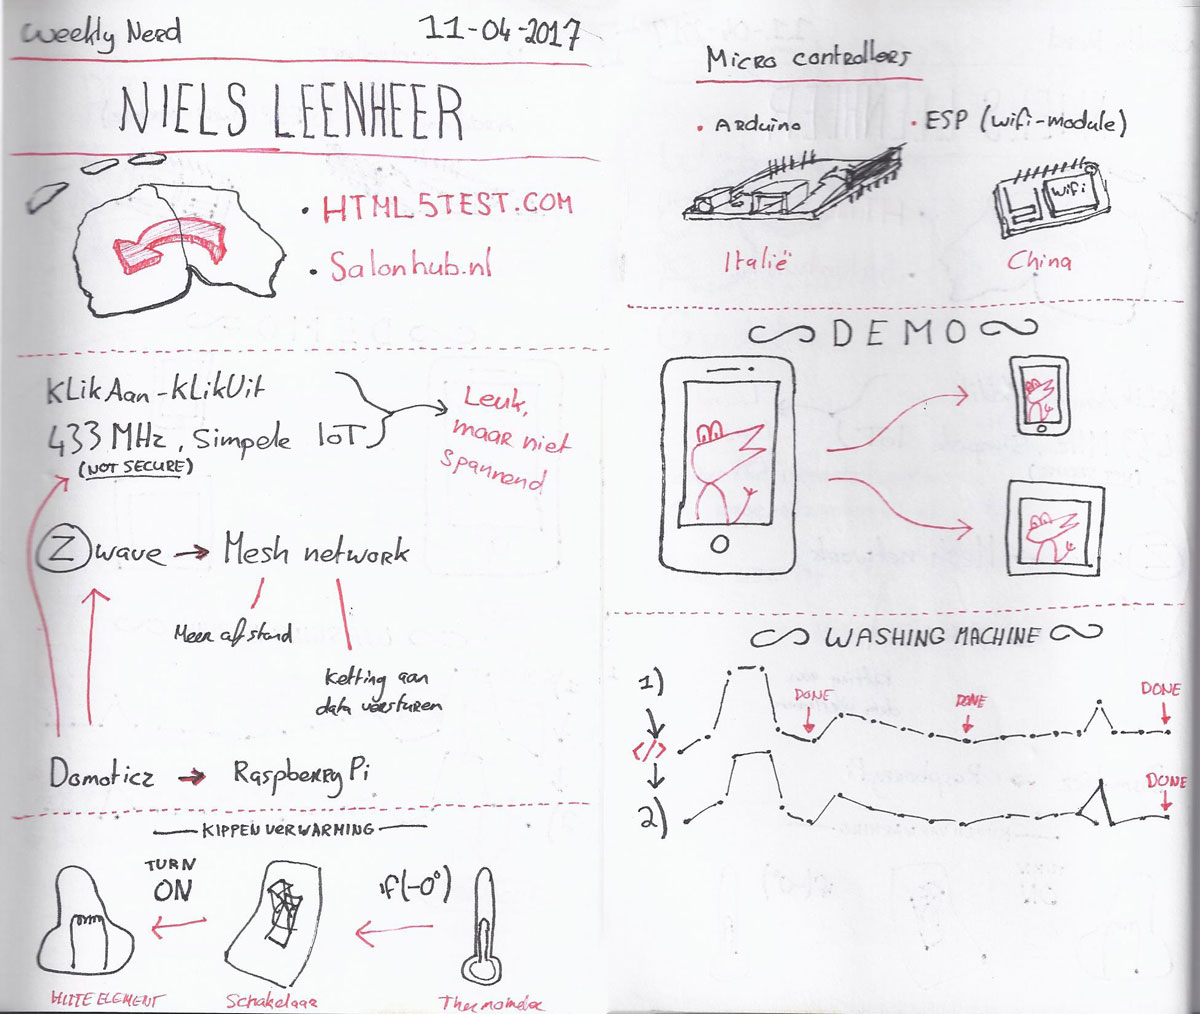 Weekly Nerd
11-04-2017
NIELS LEENHEER
• HTML5TEST.COM
• Salonhub.nl
KlikAan-KlikUit
433 MHz, Simpele IoT
(NOT SECURE)
Leuk,
maar niet
Spannend
Z wave → Mesh network
Meer afstand
Ketting aan
data versturen
Domoticz → Raspberry Pi
KIPPENVERWARMING
TURN
ON
if(-0°)
HITTE ELEMENT
Schakelaar
Thermometer
Micro controllers
• Arduino
• ESP (wifi-module)
wifi
Italië
China
DEMO
WASHING MACHINE
1)
DONE
DONE
DONE
</>
2)
DONE